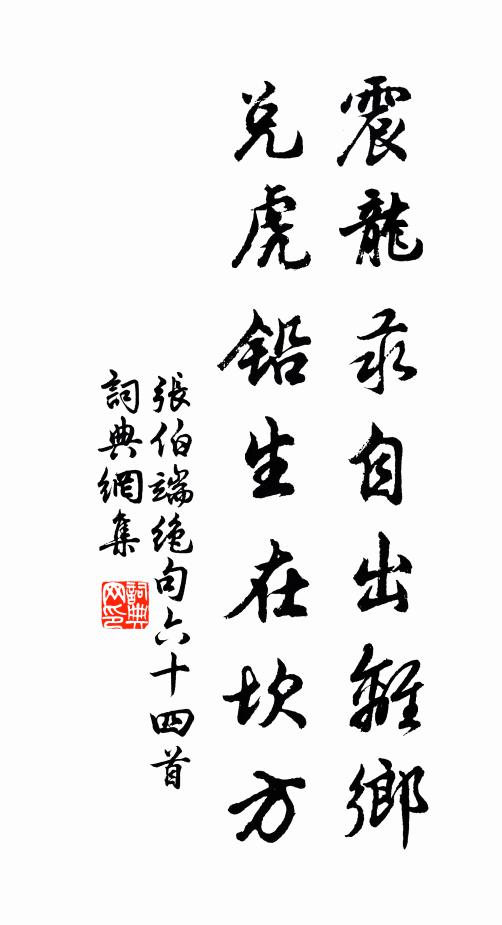 震龍汞自出離鄉
兌虎鉛生在坎方
張伯端絶句六十四首
詞典網集
詞典
网印